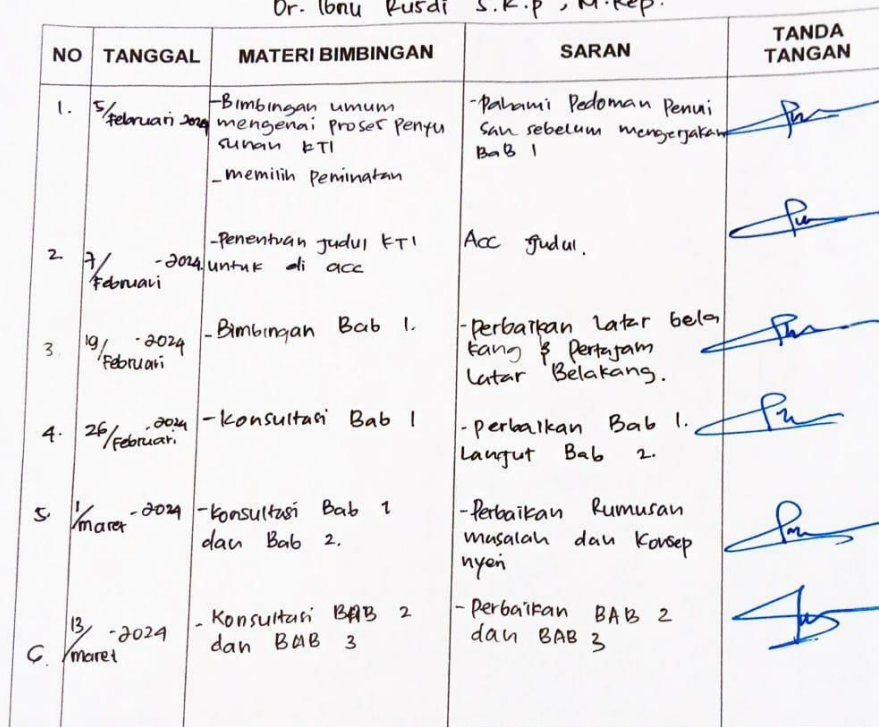 Dr. Ibnu Rusdi S.K.p, M.Kep.
NO TANGGAL MATERI BIMBINGAN SARAN TANDA TANGAN
1. 5/Februari 2024 -Bimbingan umum mengenai proses Penyu sunan KTI -Pahami Pedoman Penui san sebelum mengerjakan BaB 1
-memilih Peminatan
2. 7/Februari -2024. -Penentuan Judul KTI untuk di acc Acc Judul.
3. 19/Februari -2024 -Bimbingan Bab 1. -Perbaikan Latar bela kang & Pertajam Latar Belakang.
4. 26/Februari -2024 -Konsultasi Bab 1 -perbaikan Bab 1. Lanjut Bab 2.
5. 1/maret -2024 -Konsultasi Bab 1 dan Bab 2. -Perbaikan Rumusan masalah dan Konsep nyeri
6. 13/maret -2024 -Konsultasi BAB 2 dan BAB 3 -Perbaikan BAB 2 dan BAB 3